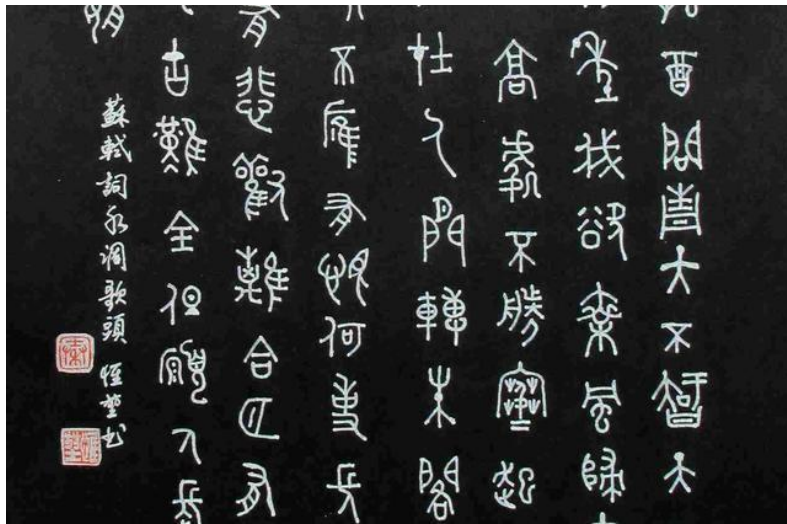 酒問青天不智天
我欲乘風歸
高處不勝寒起
在人間轉朱閣
不應有恨何事長
有悲歡離合月有
古難全但願人長
蘇軾詞水调歌頭 埜书